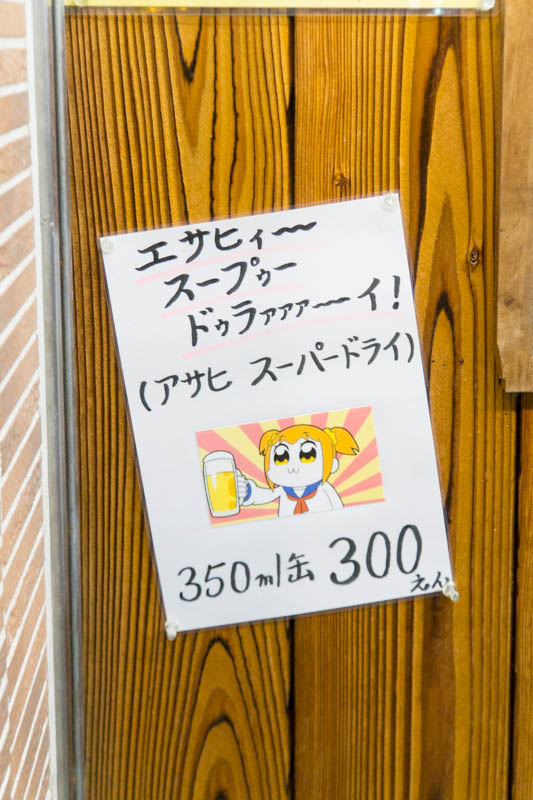 エサヒィ〜
スープゥー
ドゥラァァァ〜イ!
(アサヒ スーパードライ)
350ml缶 300えん